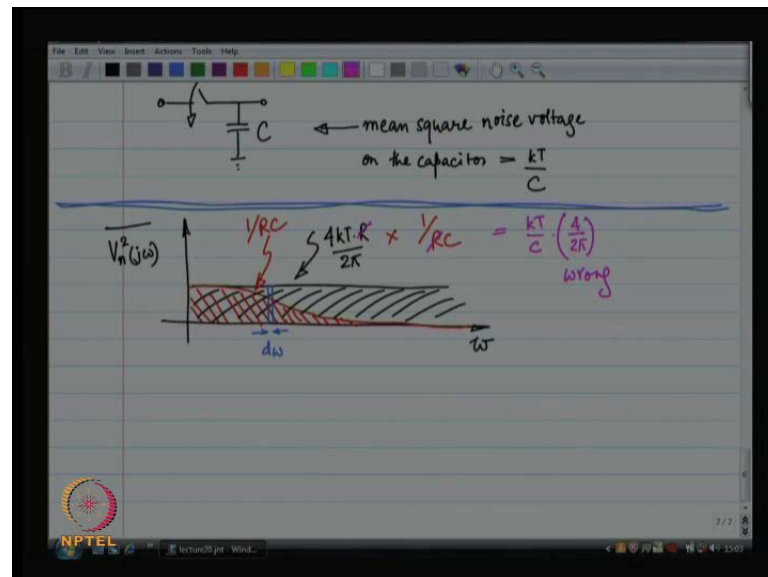 File Edit View Insert Actions Tools Help
B I
C ← mean square noise voltage
on the capacitor = kT/C
1/RC
Vn²(jω) 4kT.R/2π × 1/RC = kT/C · (4/2π)
wrong
dω
ω
7/7
NPTEL
lecture20.jnt - Wind...
15:03